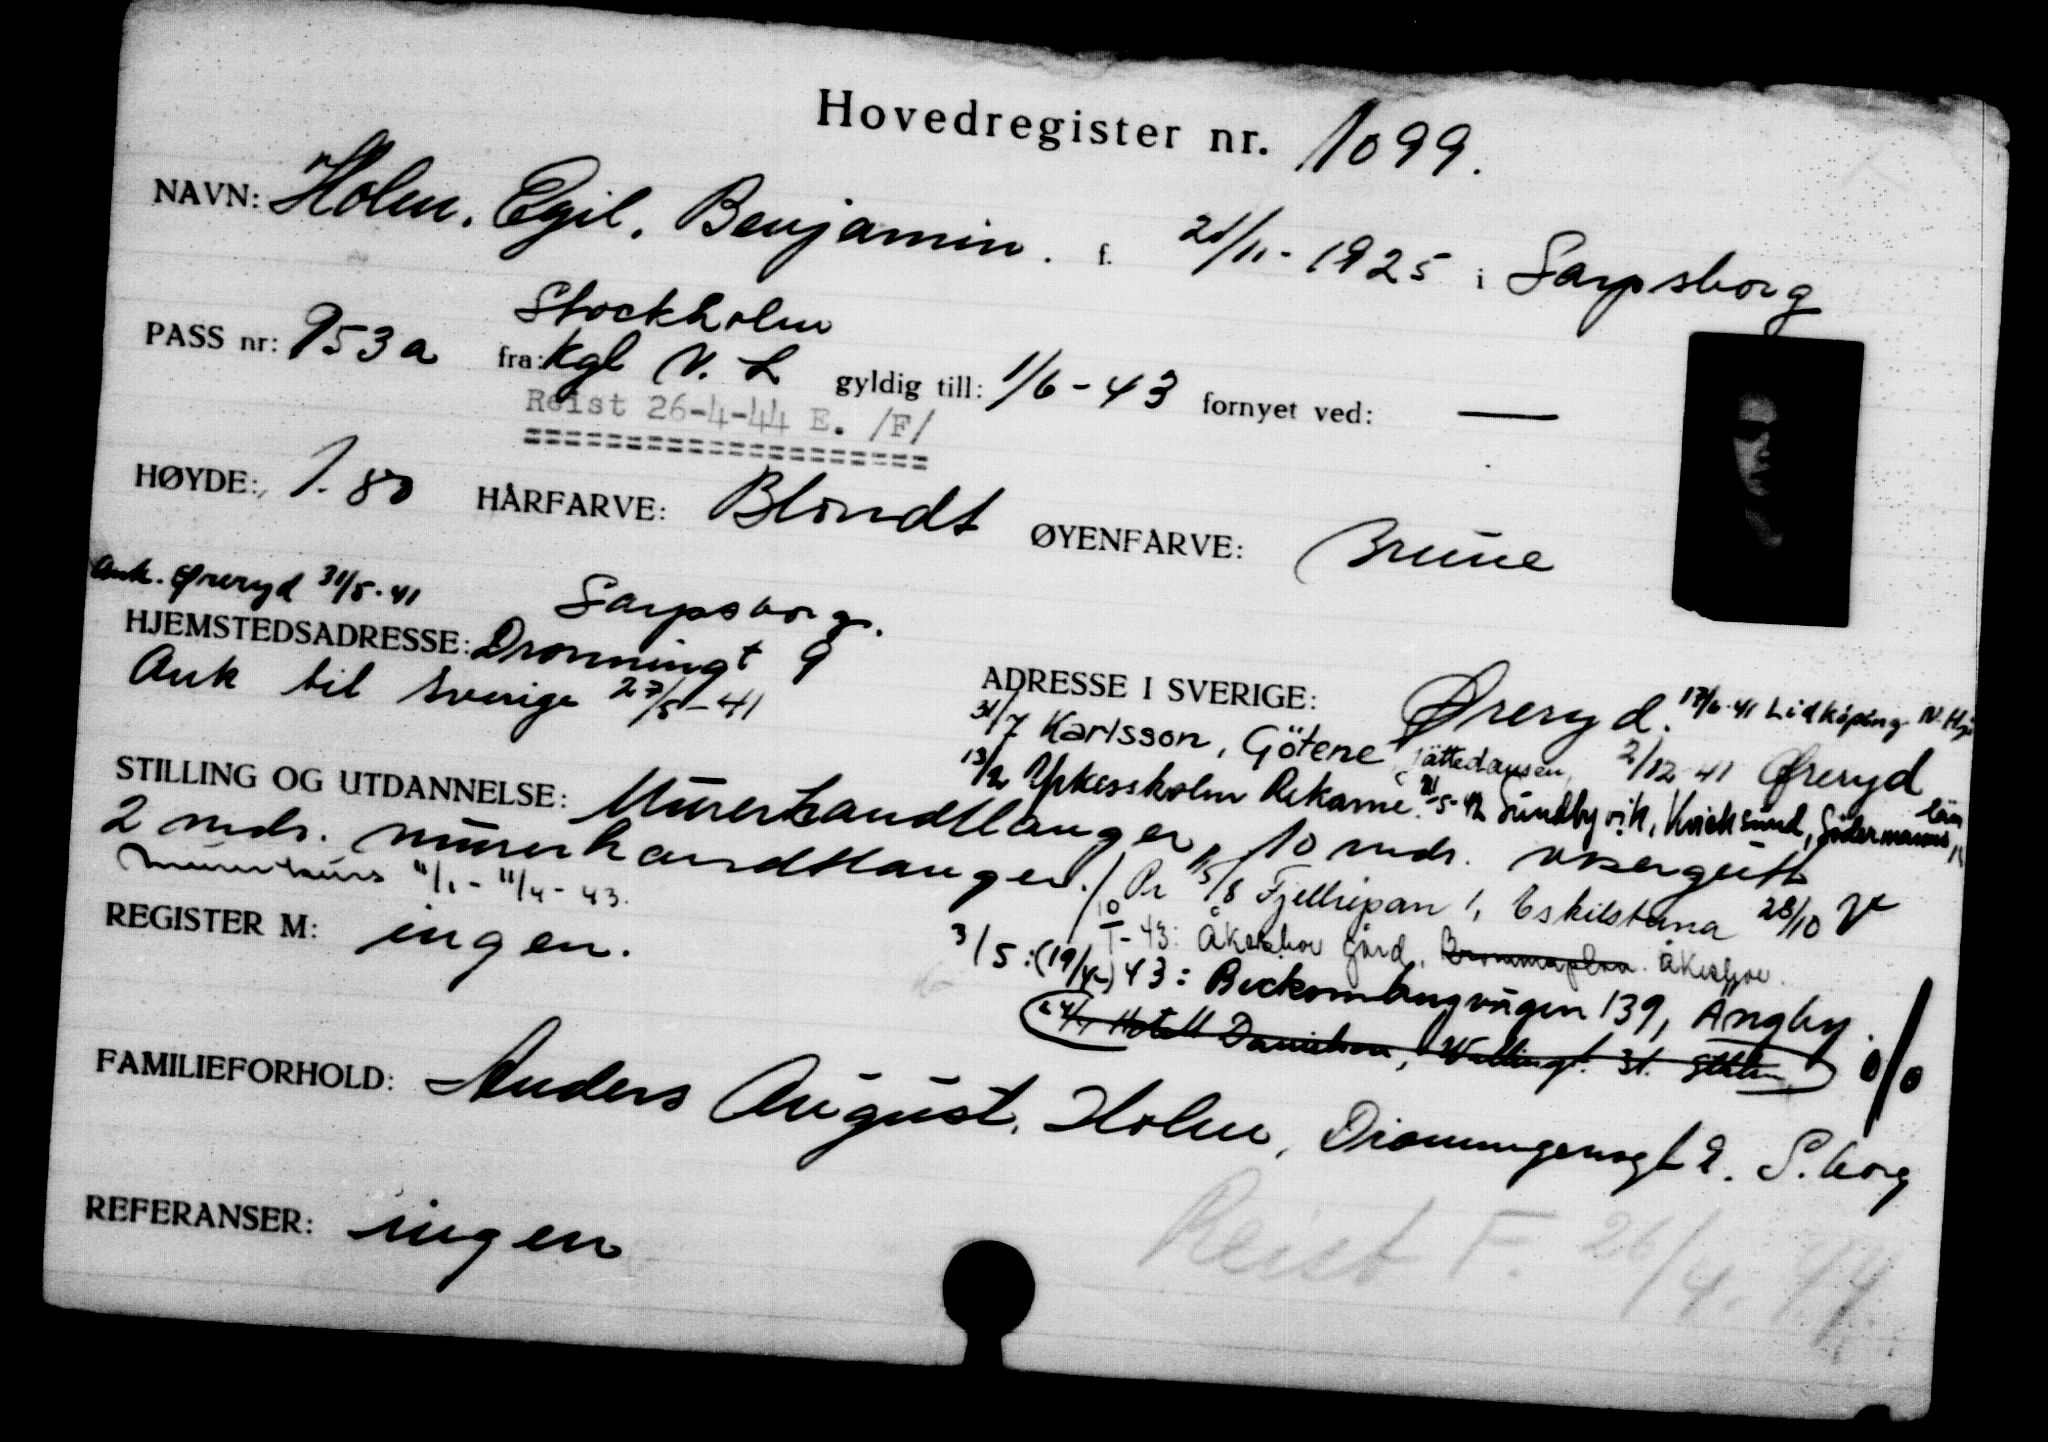 Hovedregister nr. 1099.
NAVN: Holm, Egil, Benjamin. f. 21/11-1925 i Sarpsborg
Stockholm
PASS nr: 953a fra: Kgl N. L gyldig till: 1/6-43 fornyet ved: —
Reist 26-4-44 E. /F/
HØYDE: 1.80 HÅRFARVE: Blondt ØYENFARVE: Brune
Ank. Øreryd 31/5-41
Sarpsborg.
HJEMSTEDSADRESSE: Dronningt 9
Ank til Sverige 27/5-41
ADRESSE I SVERIGE: Øreryd. 17/6-41 Lidköping
31/7 Karlsson, Götene 2/12-41 Øreryd
13/2 Yrkesskolen Rekarne. 21/5-42 Sundbyvik, Kvicksund, Södermanns län
STILLING OG UTDANNELSE: Murerhandtlanger, 10 mdr. visergutt
2 mdr. murerhandtlanger./ Pr 15/8 Fjellripan 1, Eskilstuna 28/10
Murerkurs 11/1-11/4-43.
10/1-43: Åkeshov gård, Brommaplan. Åkeshov.
REGISTER M: ingen.
3/5:(19/4-)43: Beckombergvägen 139, Ängby.
Hotell Danielson, Wallingt. 31. Sthlm
%
FAMILIEFORHOLD: Anders August, Holm, Dronningensgt 9. S.borg
REFERANSER: ingen
Reist F. 26/4.44.